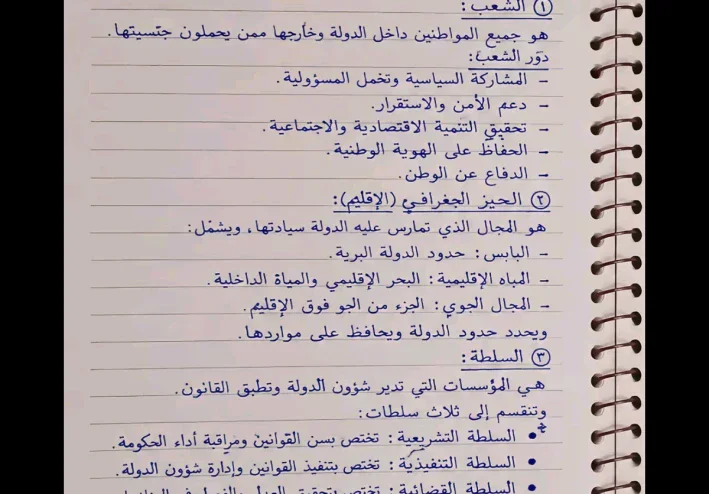 ① الشعب:
هو جميع المواطنين داخل الدولة وخارجها ممن يحملون جنسيتها.
دور الشعب:
– المشاركة السياسية وتحمل المسؤولية.
– دعم الأمن والاستقرار.
– تحقيق التنمية الاقتصادية والاجتماعية.
– الحفاظ على الهوية الوطنية.
– الدفاع عن الوطن.
② الحيز الجغرافي (الإقليم):
هو المجال الذي تمارس عليه الدولة سيادتها، ويشمل:
– اليابس: حدود الدولة البرية.
– المياه الإقليمية: البحر الإقليمي والمياة الداخلية.
– المجال الجوي: الجزء من الجو فوق الإقليم.
ويحدد حدود الدولة ويحافظ على مواردها.
③ السلطة:
هي المؤسسات التي تدير شؤون الدولة وتطبق القانون.
وتنقسم إلى ثلاث سلطات:
• السلطة التشريعية: تختص بسن القوانين ومراقبة أداء الحكومة.
• السلطة التنفيذية: تختص بتنفيذ القوانين وإدارة شؤون الدولة.
• السلطة القضائية: تختص بتحقيق العدل